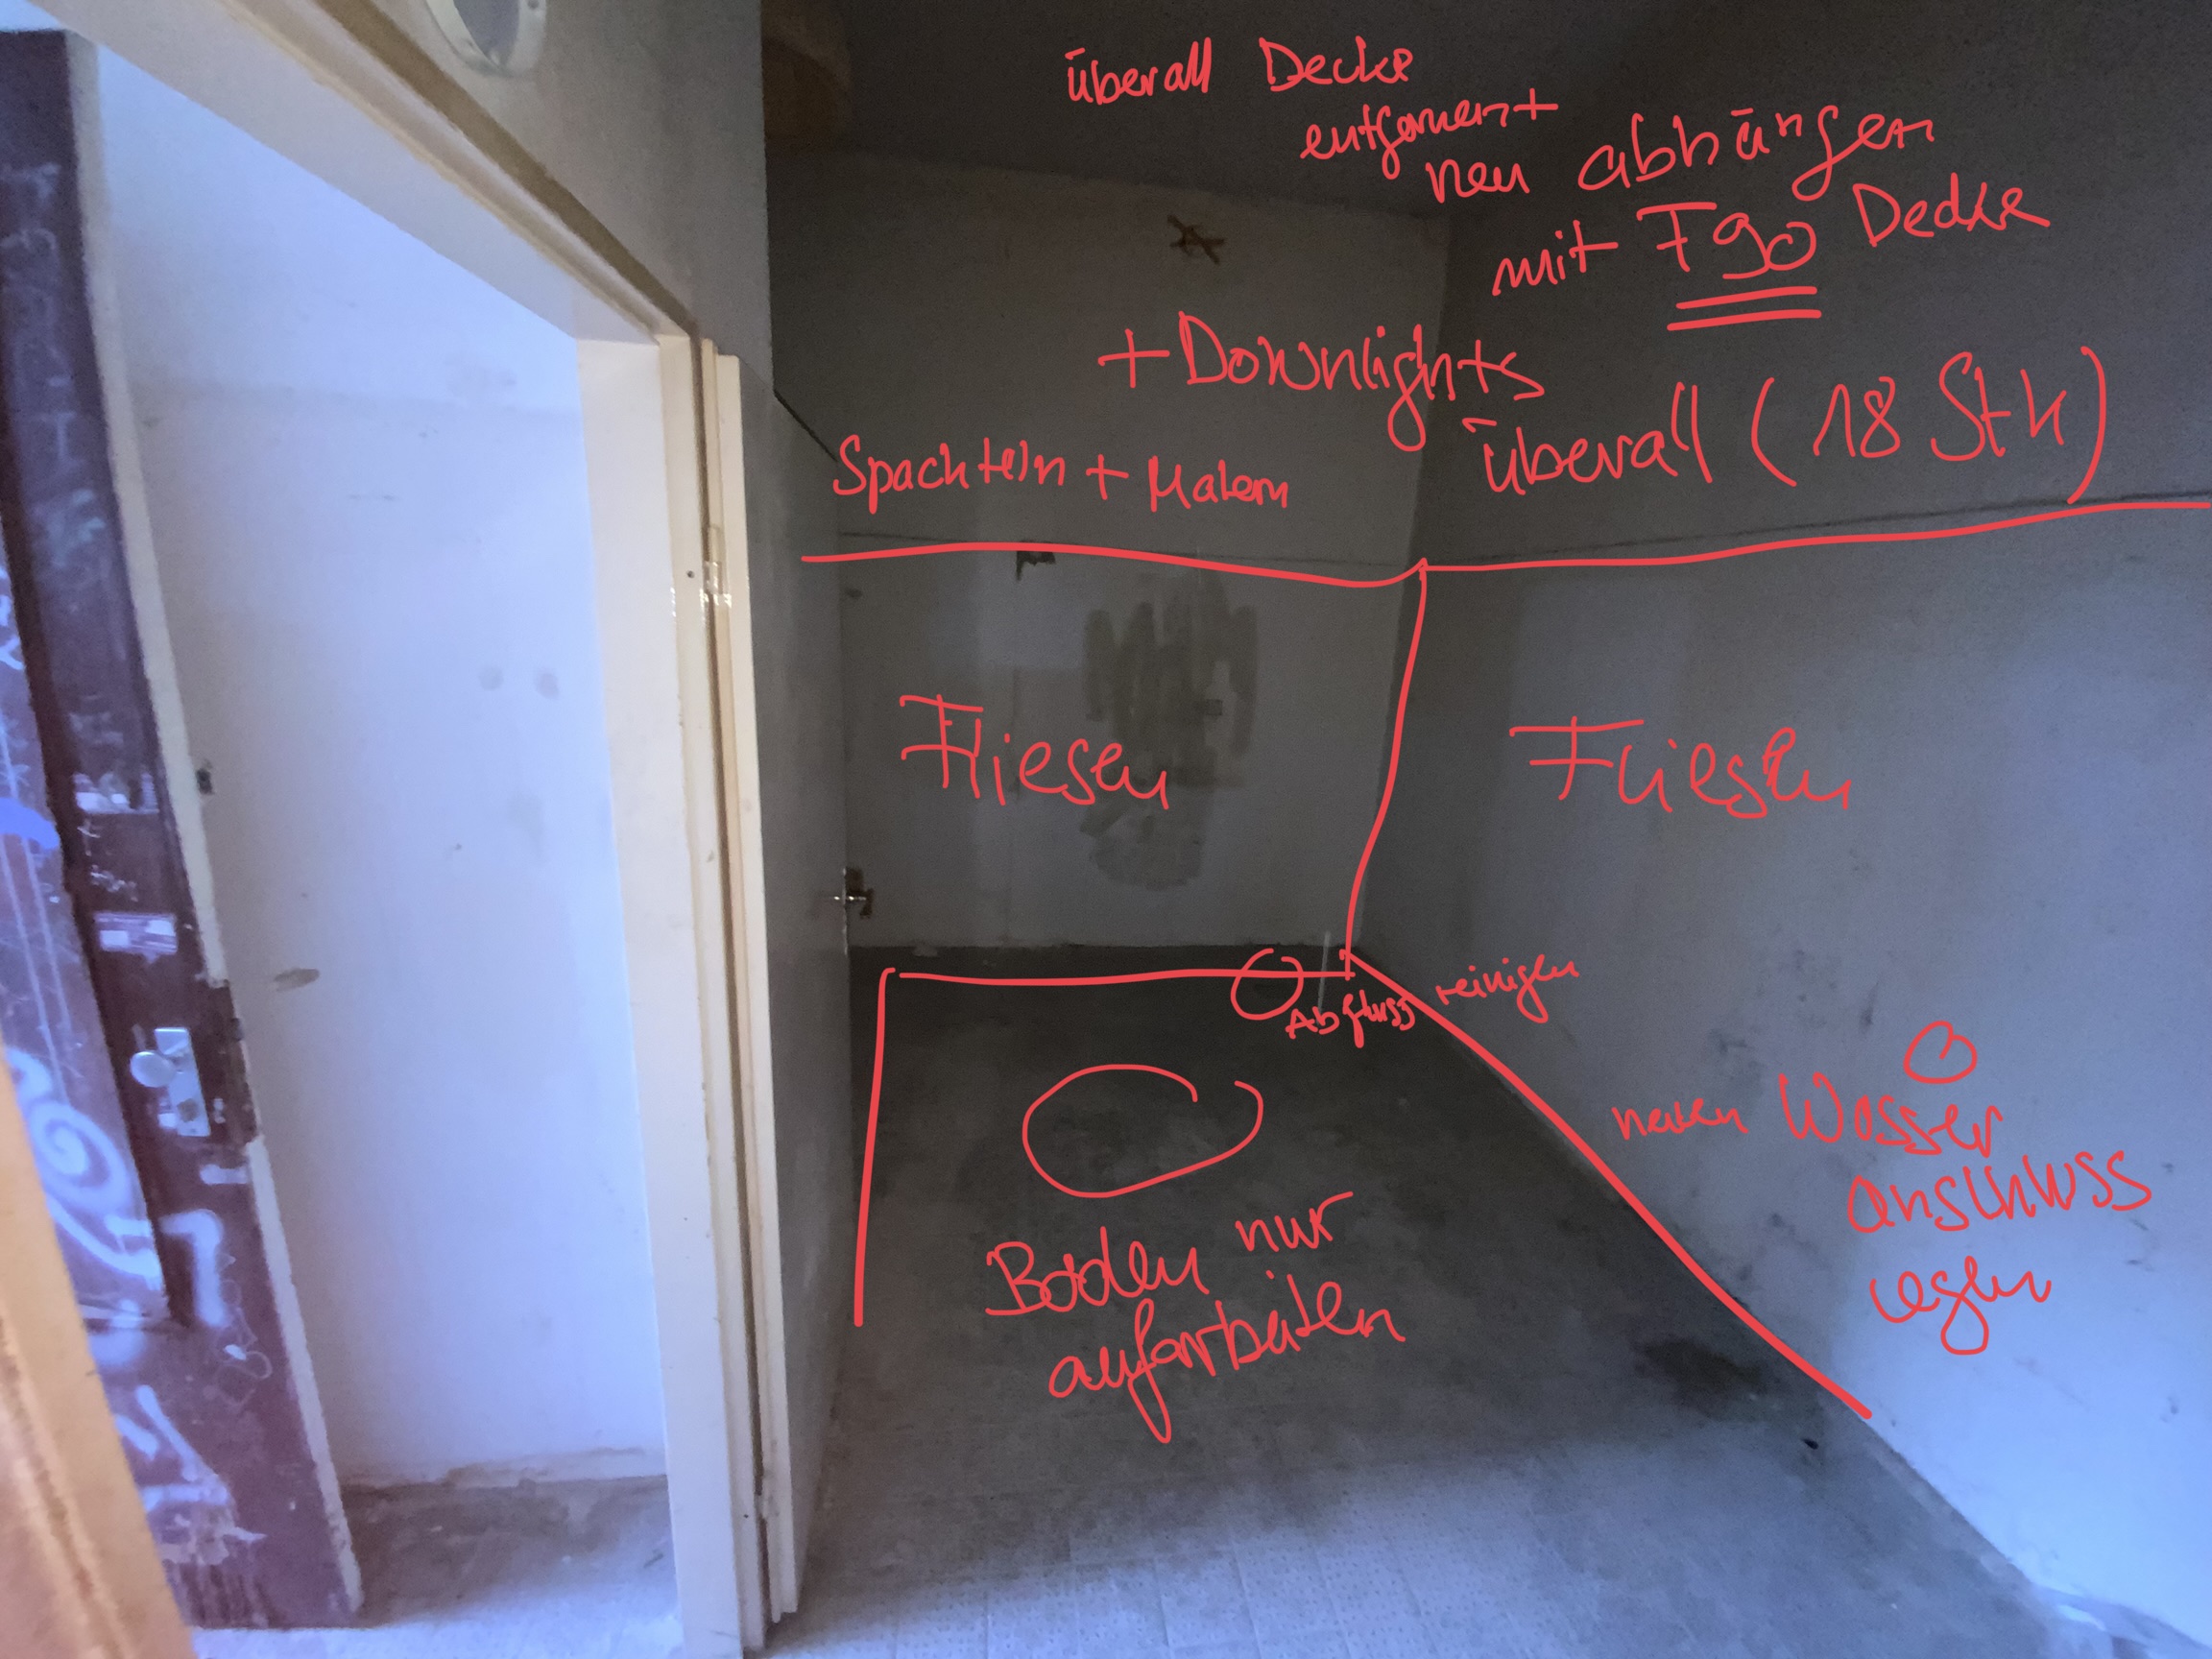 überall Decke
entfernen +
neu abhängen
mit F90 Decke
+ Downlights
überall (18 Stk)
Spachteln + Malern
Fliesen
Fliesen
Abfluss reinigen
neuen Wasser
anschluss
legen
Boden nur
aufarbeiten